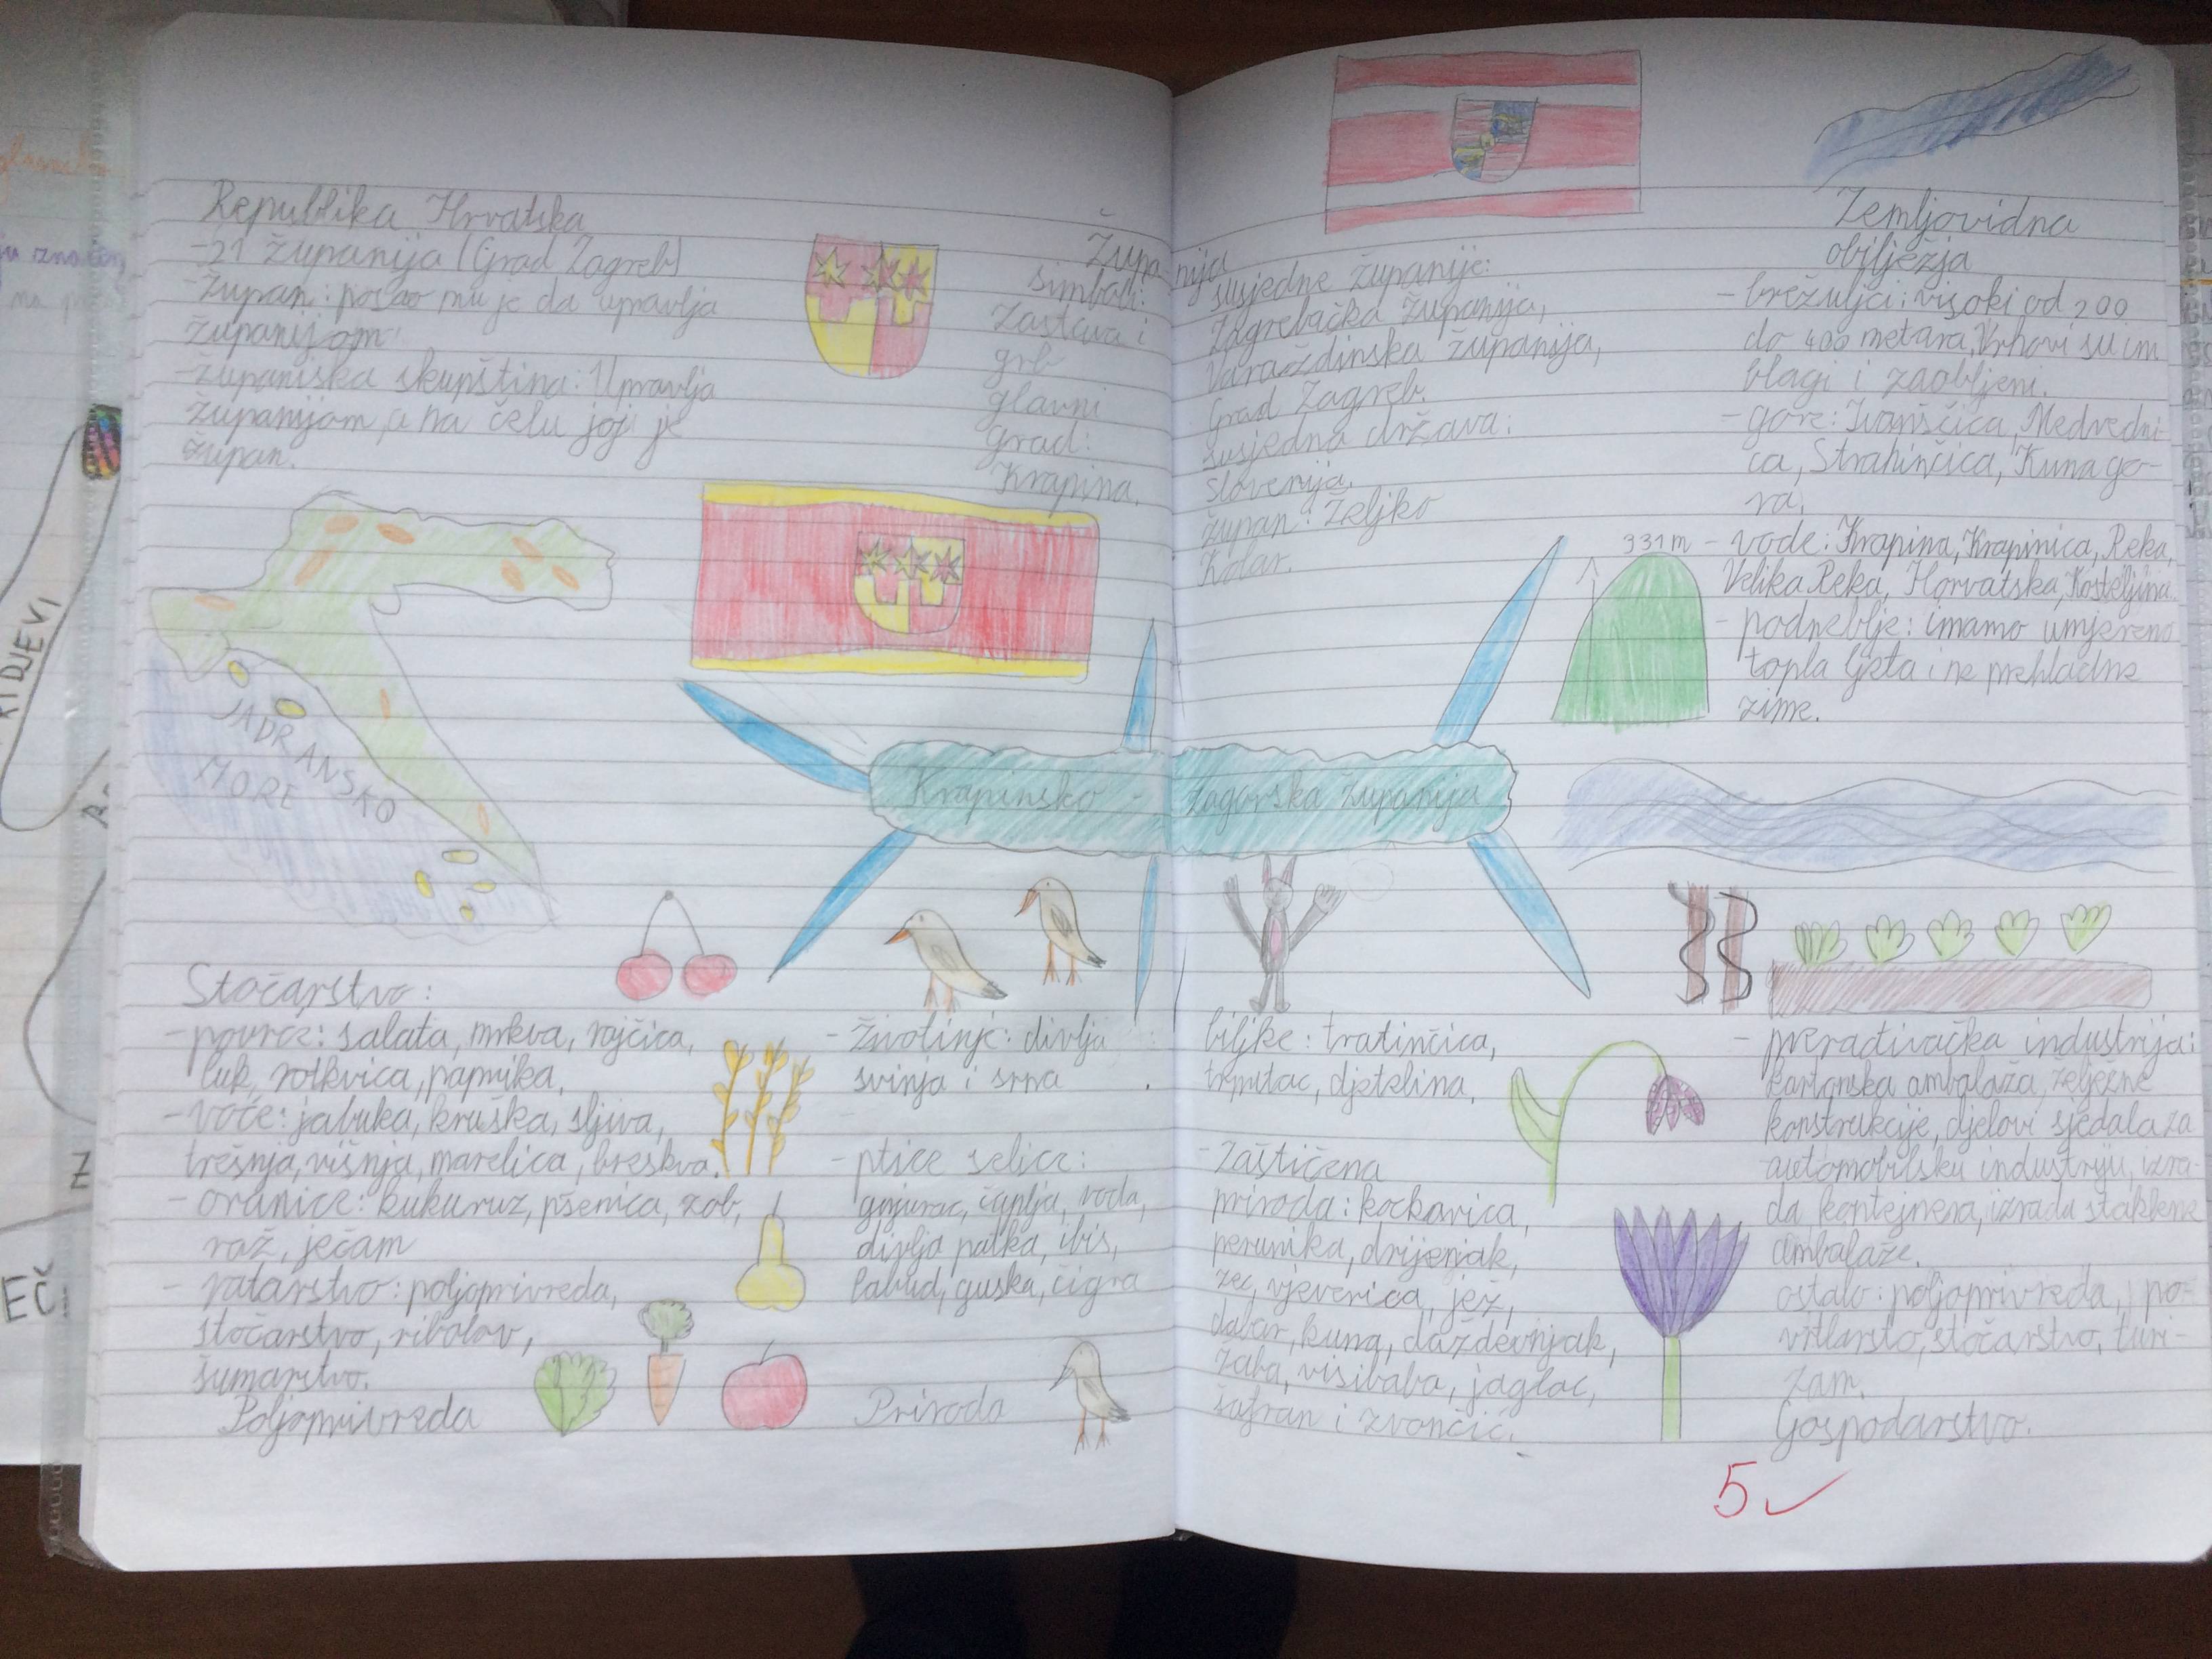 Republika Hrvatska
-21 županija (Grad Zagreb)
-župan: posao mu je da upravlja
županijom
-županiska skupština: Upravlja
županijom, a na čelu joj je
župan.
JADRANSKO
MORE
Županija
simboli:
zastava i
grb
glavni
grad:
Krapina.
susjedne županije:
Zagrebačka županija,
Varaždinska županija,
Grad Zagreb.
susjedna država:
Slovenija.
župan: Željko
Kolar.
Zemljovidna
obilježja
- brežuljci: visoki od 200
do 400 metara, Vrhovi su im
blagi i zaobljeni.
- gore: Ivanščica, Medvedni
ca, Strahinčica, Kuna go-
ra.
331m
- vode: Krapina, Krapinica, Reka,
Velika Reka, Horvatska, Kosteljina.
- podneblje: imamo umjereno
topla ljeta i ne prehladne
zime.
Krapinsko - zagorska županija
Stočarstvo:
- povrće: salata, mrkva, rajčica,
luk, rotkvica, paprika.
- voće: jabuka, kruška, sljiva,
trešnja, višnja, marelica, breskva.
- oranice: kukuruz, pšenica, zob,
raž, ječam
- ratarstvo: poljoprivreda,
stočarstvo, ribolov,
šumarstvo.
Poljoprivreda
- životinje: divlja
svinja i srna
- ptice selice:
gnjurac, čaplja, roda,
divlja patka, ibis,
labud, guska, čigra
Priroda
biljke: tratinčica,
trputac, djetelina.
- zaštićena
priroda: kockavica,
perunika, drijenjak,
zec, vjeverica, jež,
dabar, kuna, daždevnjak,
žaba, visibaba, jaglac,
šafran i zvončić.
- prerađivačka industrija:
kartonska ambalaža, željezne
konstrukcije, djelovi sjedala za
automobilsku industriju, izra-
da kontejnera, izrada staklene
ambalaže.
ostalo: poljoprivreda, po-
vrtlarsto, stočarstvo, turi-
zam.
Gospodarstvo.
5
DJEVI
Z
EČ